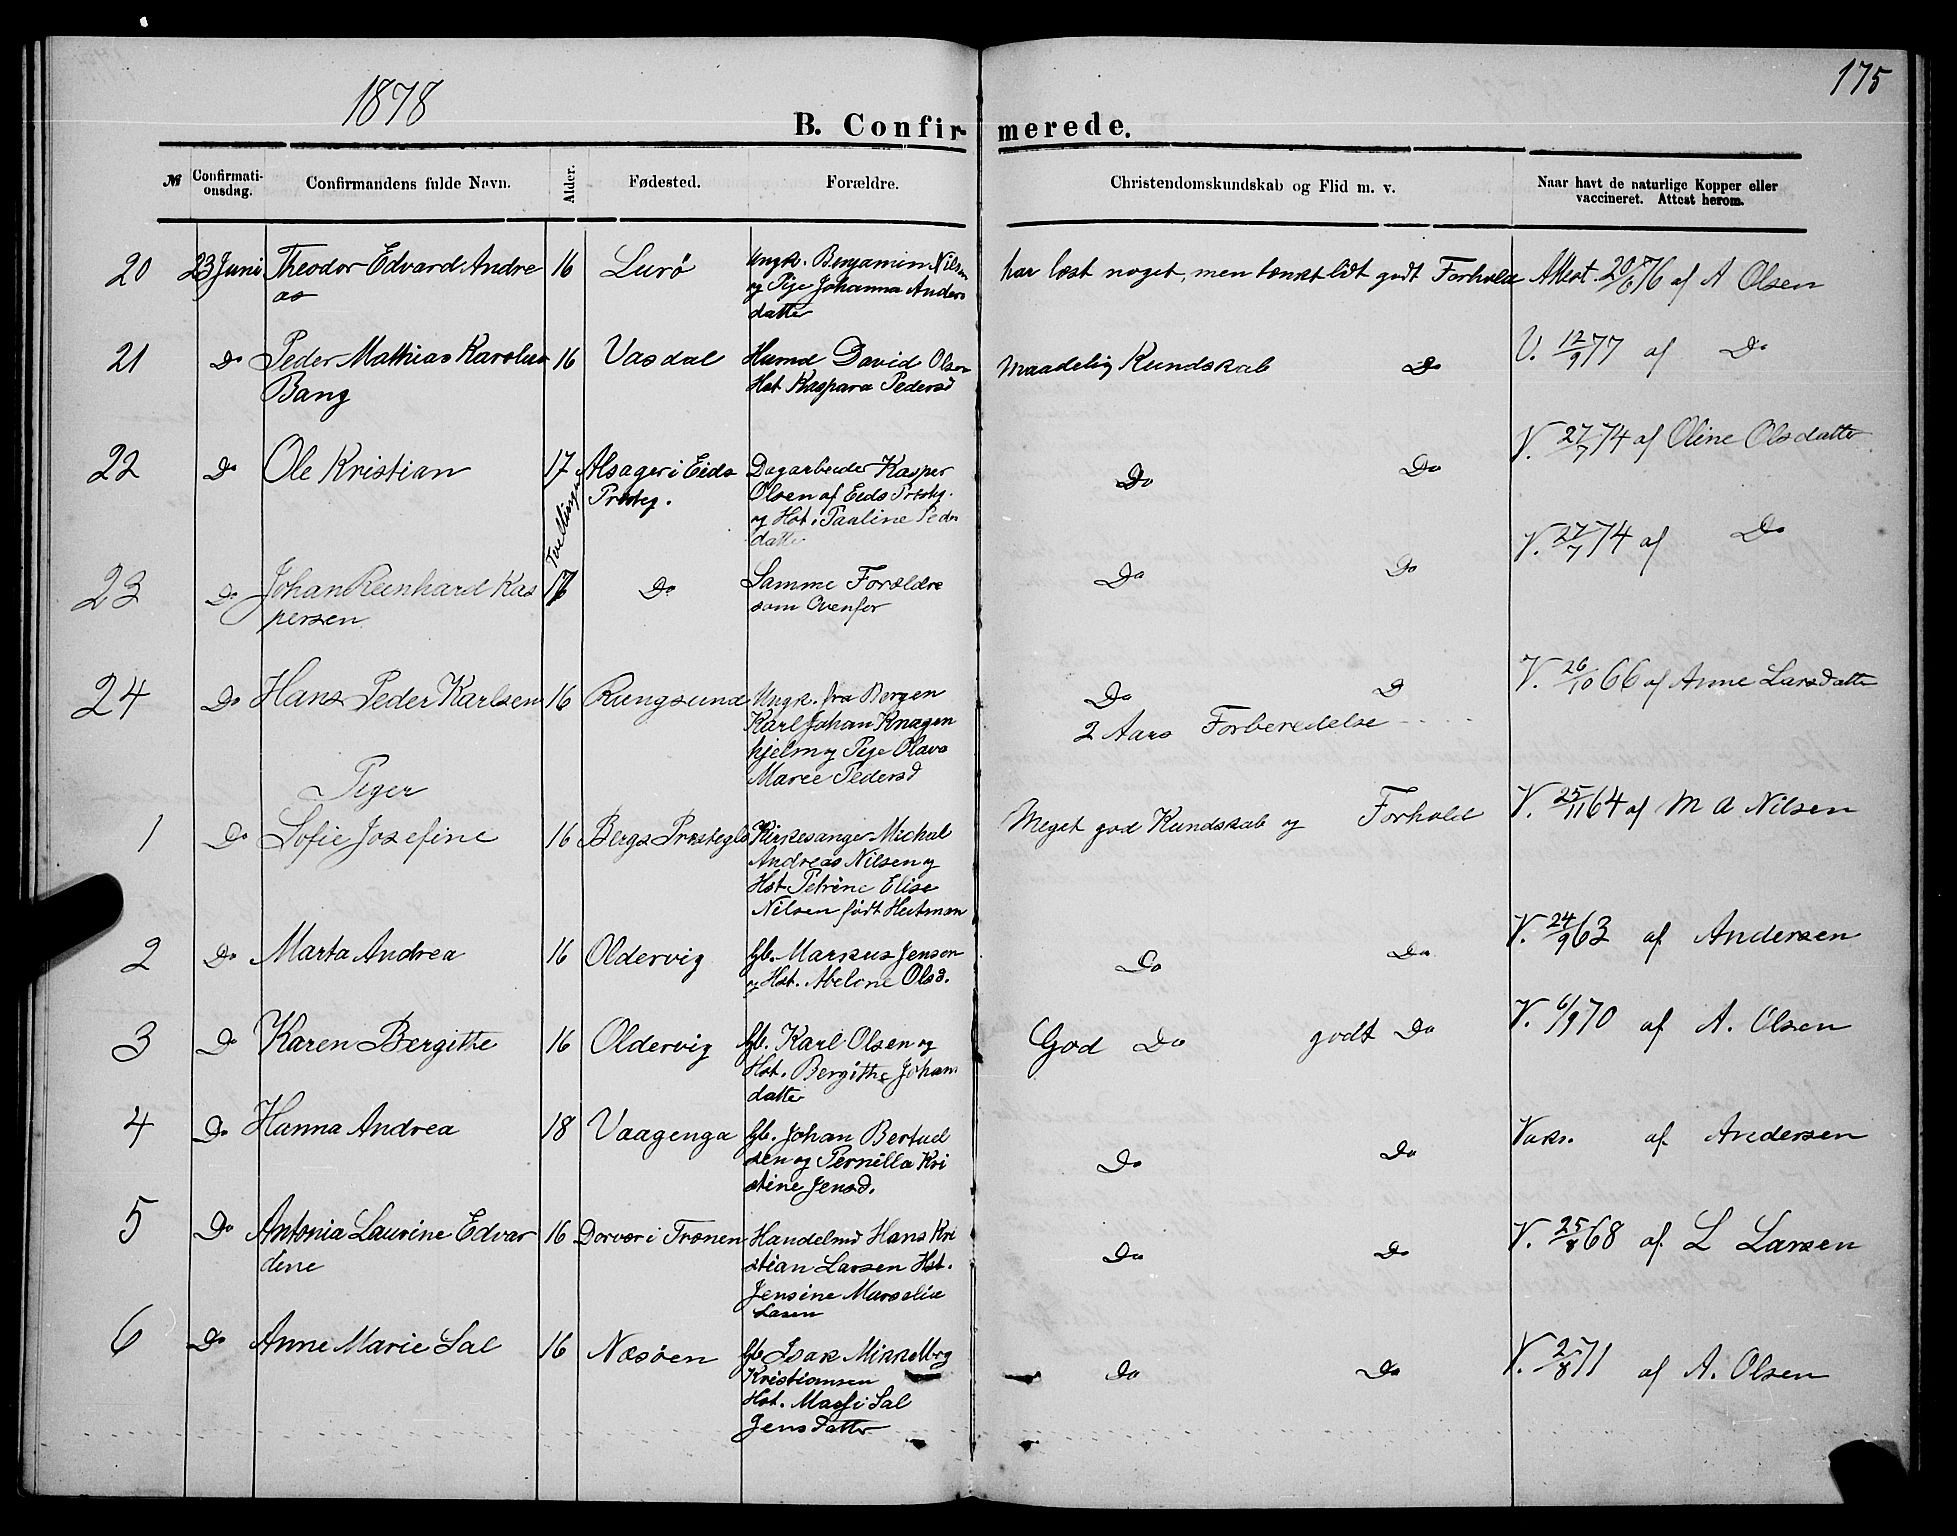 1878
175
B. Confirmerede.
№ Confirmationsdag. Confirmandens fulde Navn. Alder. Fødested. Forældre. Christendomskundskab og Flid m. v. Naar havt de naturlige Kopper eller vaccineret. Attest herom.
20 23 Juni Theodor Edvard Andre 16 Lurö Ungk. Benjamin Nilsen har læst noget, men tænkt lidt godt Forhold Attest 20/6 76 af A Olsen
as og Pige Johanna Anders
datter
21 Do Peder Mathias Karolus 16 Vasdal Husmd David Olsen Maadelig Kundskab Do V. 12/9 77 af Do
Bang Hst Kaspara Pedersd
22 Do Ole Kristian 17 Alsager i Eids Dagarbeider Kasper Do Do V. 27/7 74 af Oline Olsdatter
Tvillinger Præsteg. Olsen af Eids Præstg.
og Hst. Pauline Peder
datter
23 Do Johan Reinhard Kas 17 Do Samme Forældre Do Do V. 27/7 74 af Do
persen som Ovenfor
24 Do Hans Peder Karlsen 16 Rungsund Ungk. fra Bergen Do D V. 26/10 66 af Anne Larsdatter
Karl Johan Knagen 2 Aars Forberedelse
hjelm og Pige Olava
Marie Pedersd
Piger
1 Do Sofie Josefine 16 Bergs Præstegld Kirkesanger Michal Meget god Kundskab og Forhold V. 25/11 64 af M A Nilsen
Andreas Nilsen og
Hst Petrine Elise
Nilsen født Heitman
2 Do Marta Andrea 16 Oldervig Gb. Markus Jensen Do Do V. 24/9 63 af Andersen
og Hst. Abelone Olsd.
3 Do Karen Bergitte 16 Oldervig Gb. Karl Olsen og God Do godt Do V. 6/9 70 af A. Olsen
Hst. Bergithe Johans
datter
4 Do Hanna Andrea 18 Vaagenga Gb. Johan Bertud Do Do Vaks. af Andersen
sen og Pernilla Kri
stine Jensd.
5 Do Antonia Laurine Edvar 16 Dorvær i Trænen Handelsmd Hans Kri Do Do V. 25/8 68 af L Larsen
dine stian Larsen Hst.
Jensine Marselie
Lasen
6 Do Anne Marie Sal 16 Næsöen Gb Isak Mikkelborg Do Do V. 25/8 71 af A. Olsen
Kristiansen
Hst. Massi Sal
Jensdatter